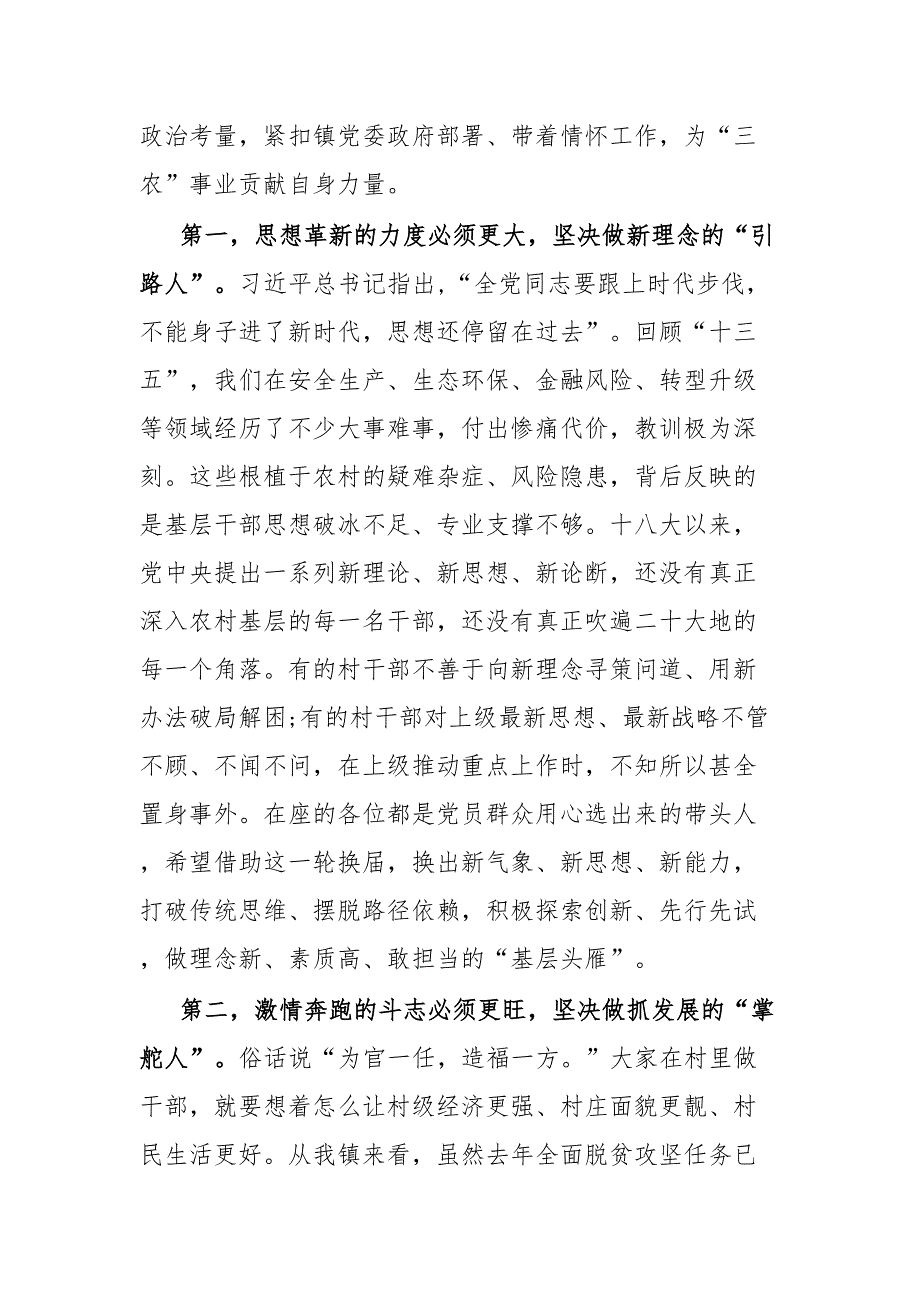 政治考量，紧扣镇党委政府部署、带着情怀工作，为“三
农”事业贡献自身力量。
第一，思想革新的力度必须更大，坚决做新理念的“引
路人”。习近平总书记指出,“全党同志要跟上时代步伐，
不能身子进了新时代，思想还停留在过去”。回顾“十三
五”，我们在安全生产、生态环保、金融风险、转型升级
等领域经历了不少大事难事，付出惨痛代价，教训极为深
刻。这些根植于农村的疑难杂症、风险隐患，背后反映的
是基层干部思想破冰不足、专业支撑不够。十八大以来，
党中央提出一系列新理论、新思想、新论断，还没有真正
深入农村基层的每一名干部，还没有真正吹遍二十大地的
每一个角落。有的村干部不善于向新理念寻策问道、用新
办法破局解困;有的村干部对上级最新思想、最新战略不管
不顾、不闻不问，在上级推动重点上作时，不知所以甚全
置身事外。在座的各位都是党员群众用心选出来的带头人
，希望借助这一轮换届，换出新气象、新思想、新能力，
打破传统思维、摆脱路径依赖，积极探索创新、先行先试
，做理念新、素质高、敢担当的“基层头雁”。
第二，激情奔跑的斗志必须更旺，坚决做抓发展的“掌
舵人”。俗话说“为官一任，造福一方。”大家在村里做
干部，就要想着怎么让村级经济更强、村庄面貌更靓、村
民生活更好。从我镇来看，虽然去年全面脱贫攻坚任务已